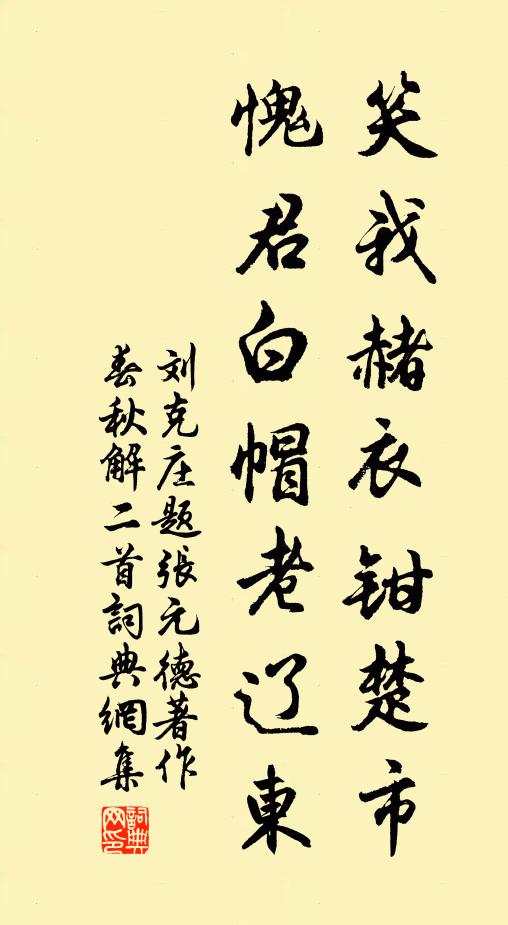 笑我赭衣钳楚市
愧君白帽老辽東
刘克庄题張元德著作
春秋解二首詞典網集
詞典网印